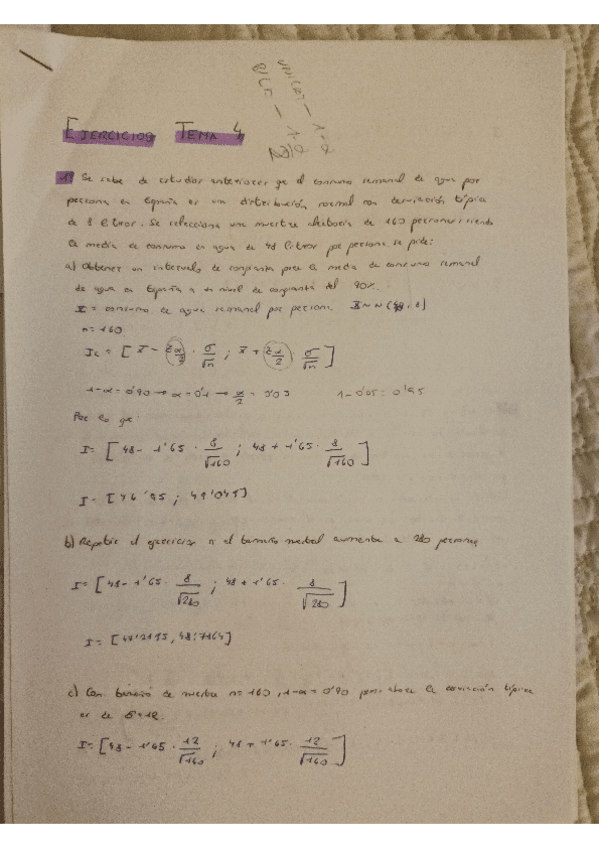 EJERCICIOS TEMA 4
1) Se sabe de estudios anteriores qe el consumo semanal de agua por
persona en España es una distribución normal con desviación típica
de 8 litros. Se selecciona una muestra aleatoria de 160 personas, siendo
la media de consumo en agua de 48 litros por persona, se pide:
a) Obtener un intervalo de confianza para la media de consumo semanal
de agua en España a un nivel de confianza del 90%.
X = consumo de agua semanal por persona. X ~ N (48, 8)
n = 160
Ic = [ x̄ - z α/2 · σ/√n ; x̄ + z α/2 · σ/√n ]
1-α = 0'90 → α = 0'1 → α/2 = 0'05 1-0'05 = 0'95
Por lo qe:
I = [ 48 - 1'65 · 8/√160 ; 48 + 1'65 · 8/√160 ]
I = [46'95 ; 49'045]
b) Repetir el ejercicio si el tamaño muestral aumenta a 280 personas
I = [ 48 - 1'65 · 8/√280 ; 48 + 1'65 · 8/√280 ]
I = [
c) Con tamaño de muestra n = 160, 1-α = 0'90 pero ahora la desviación típica
es de σ = 12.
I = [ 48 - 1'65 · 12/√160 ; 48 + 1'65 · 12/√160 ]